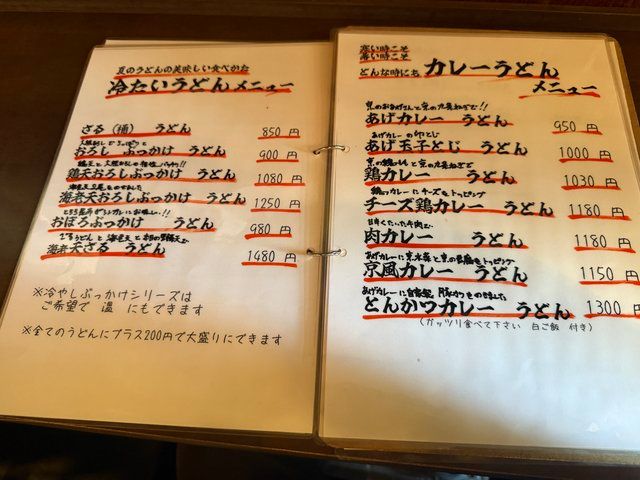 夏のうどんの美味しい食べかた
冷たいうどんメニュー
ざる(桶) うどん 850円
おろし ぶっかけ うどん 900円
鶏天おろしぶっかけ うどん 1080円
海老天おろしぶっかけ うどん 1250円
おぼろぶっかけ うどん 980円
海老天ざる うどん 1480円
※冷やしぶっかけシリーズは
ご希望で 温 にもできます
※全てのうどんにプラス200円で大盛りにできます
寒い時こそ
暑い時こそ
どんな時にも カレーうどん
メニュー
京のおあげさんと京の九条ねぎで!!
あげカレー うどん 950円
あげカレーの卵とじ
あげ玉子とじ うどん 1000円
鶏カレー うどん 1030円
鶏カレーにチーズをトッピング
チーズ鶏カレー うどん 1180円
肉カレー うどん 1180円
京風カレー うどん 1150円
とんかつカレー うどん 1300円
(ガッツリ食べて下さい 白ご飯 付き)